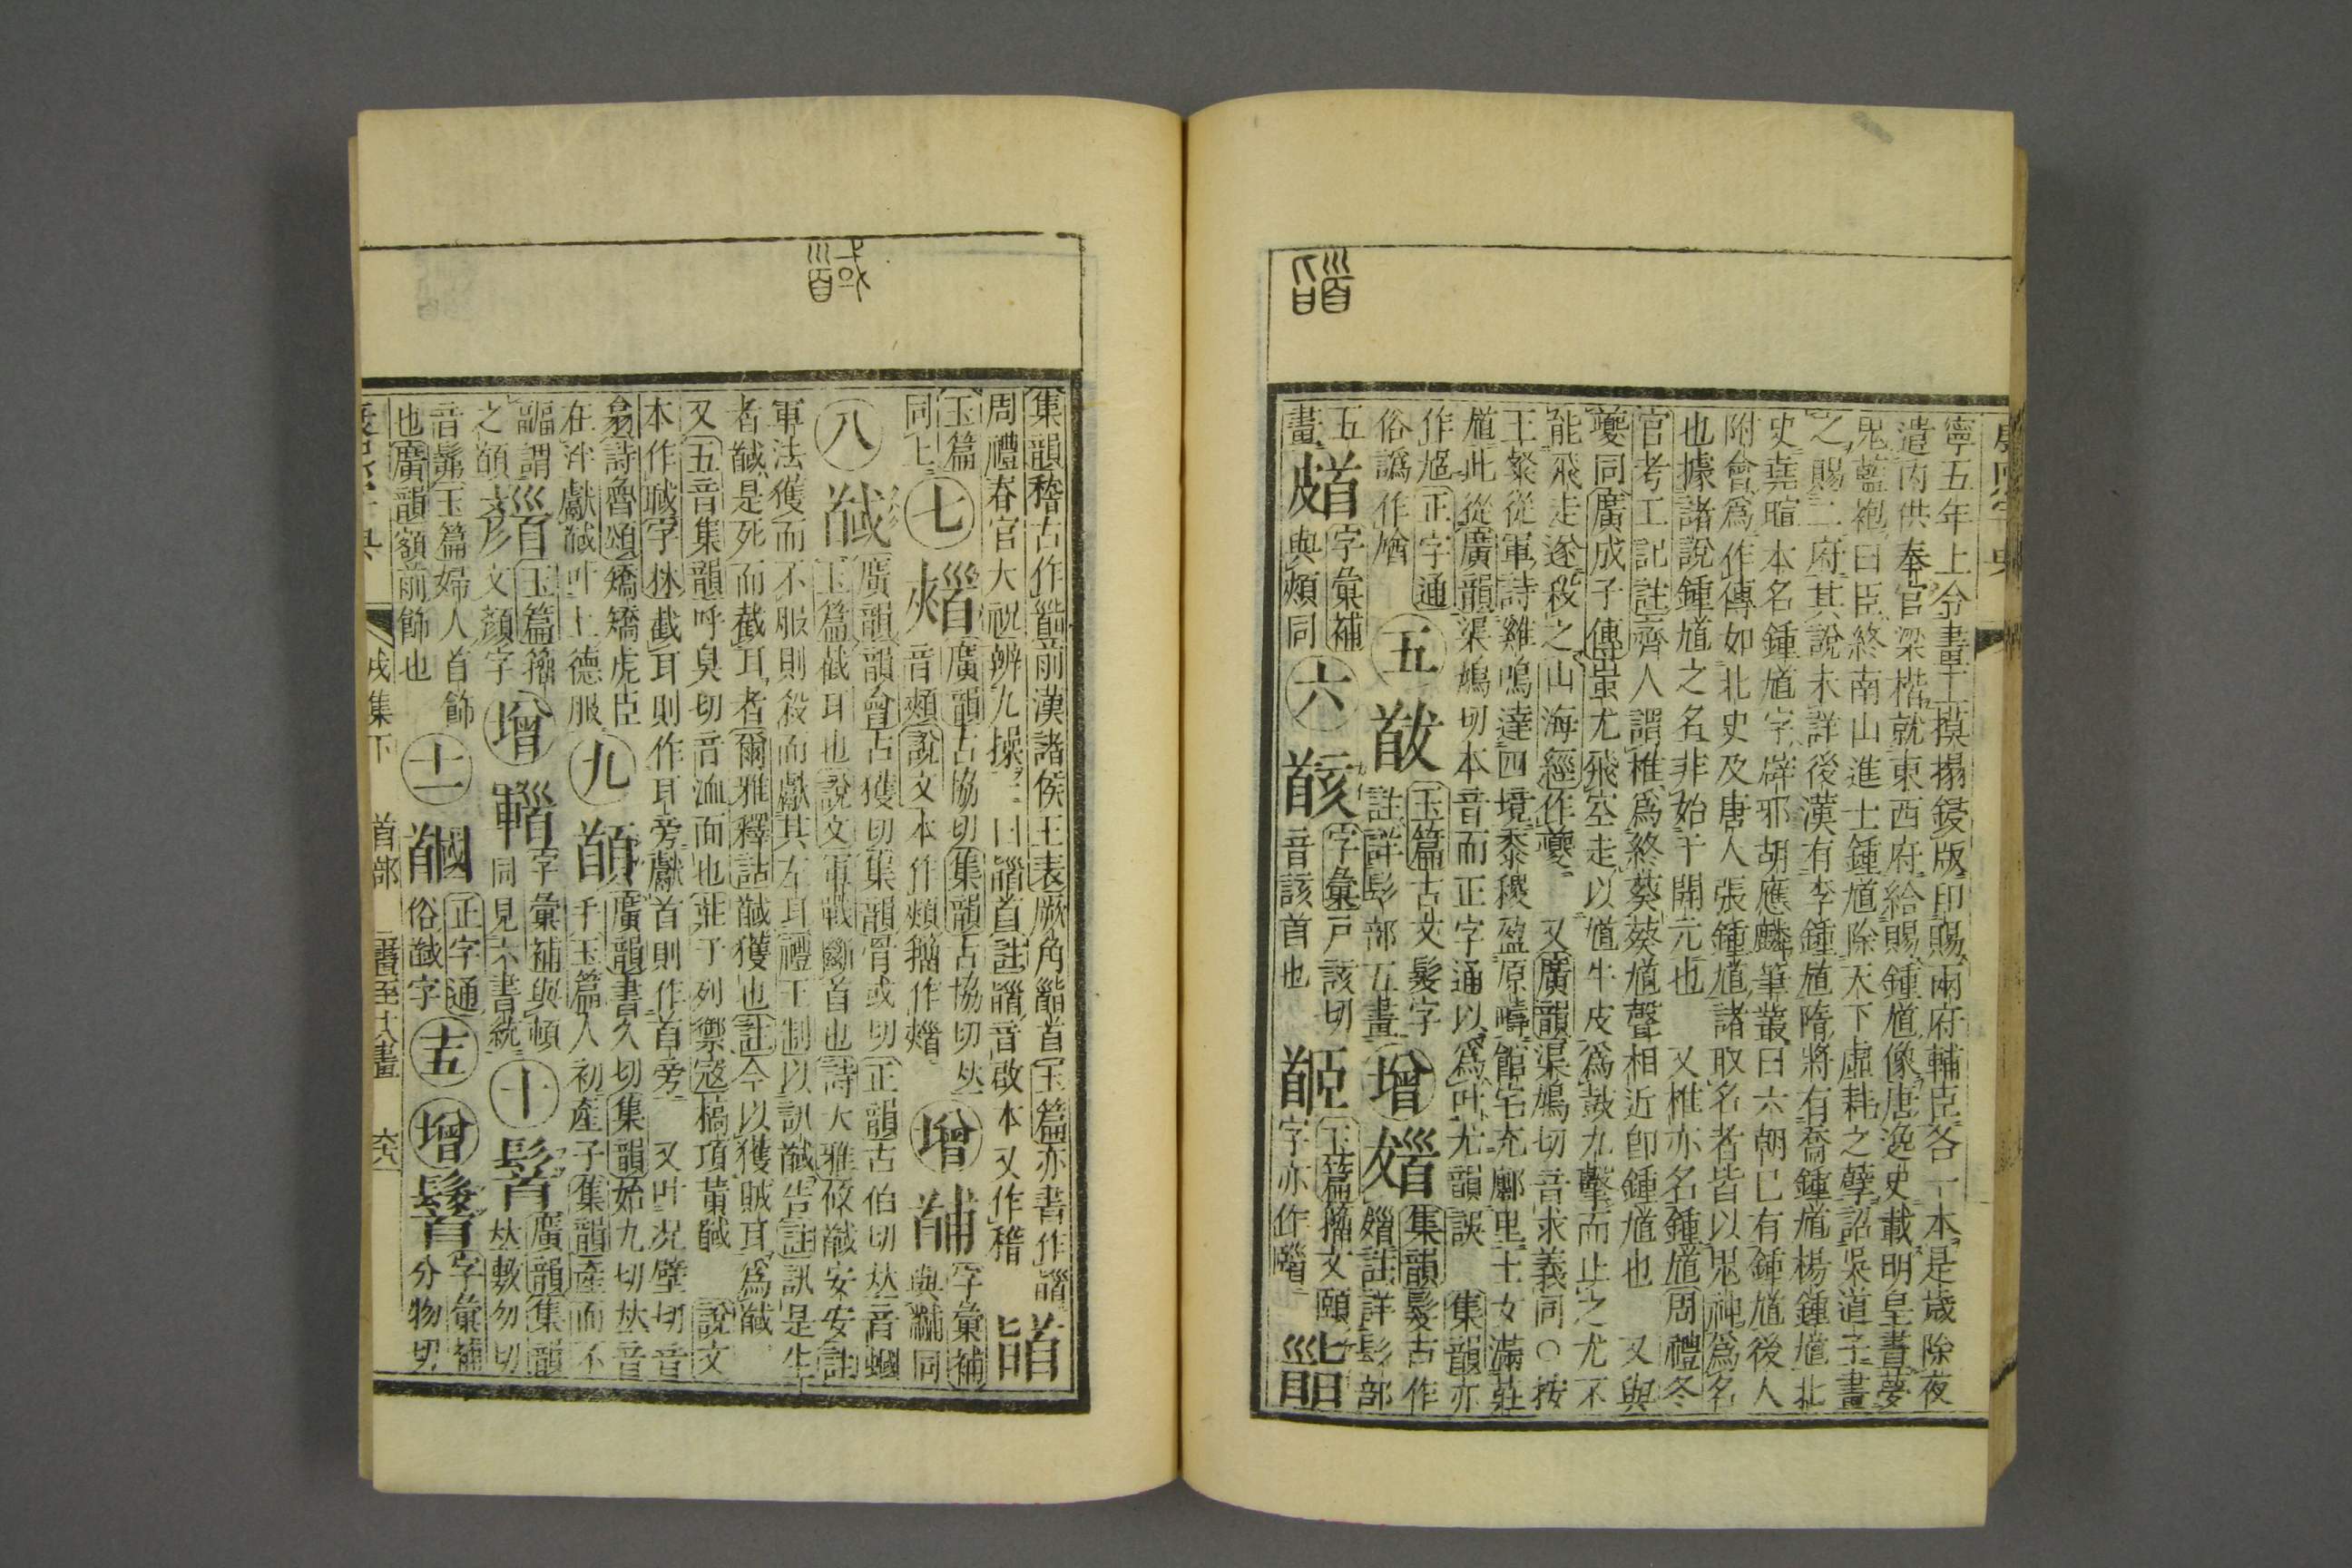 寧五年上令畫工摸搨鋟版印賜兩府輔臣各一本是歲除夜
遣內供奉官梁楷就東西府給賜鍾馗像唐逸史載明皇晝夢
鬼藍袍曰臣終南山進士鍾馗除天下虛耗之孽詔吳道子畫
之賜二府其說未詳後漢有李鍾馗隋將有喬鍾馗楊鍾馗北
史堯暄本名鍾馗字辟邪胡應麟筆叢曰六朝已有鍾馗後人
附會爲作傳如北史及唐人張鍾馗諸取名者皆以鬼神爲名
也據諸說鍾馗之名非始于開元也 又椎亦名鍾馗周禮冬
官考工記註齊人謂椎爲終葵葵馗聲相近卽鍾馗也 又與
夔同廣成子傳蚩尤飛空走以馗牛皮爲鼓九擊而止之尤不
能飛走遂殺之山海經作夔 又廣韻渠鳩切音求義同○按
王粲從軍詩雞鳴達四境黍稷盈原疇館宅充廛里士女滿莊
馗此從廣韻渠鳩切本音而正字通以爲叶尤韻誤 集韻亦
作尵正字通
俗譌作馗
五
玉篇古文髮字
註詳髟部五畫
增
集韻髮古作
註詳髟部
五
畫
字彙補
與頰同
六
字彙戸該切
音該首也
玉篇籀文頤
字亦作
集韻稽古作䭫前漢諸侯王表厥角䭫首玉篇亦書作
周禮春官大祝辨九𢷎一曰䭫首註䭫音啟本又作稽
玉篇
同上
七
廣韻古協切集韻吉協切𠀤
音頰說文本作頰籀作
增
字彙補
與黼同
八
馘
廣韻韻會古獲切集韻骨或切正韻古伯切𠀤音蟈
玉篇截耳也說文軍戰斷首也詩大雅攸馘安安註
軍法獲而不服則殺而獻其左耳禮王制以訊馘告註訊是生
者馘是死而截耳者爾雅釋詁馘獲也註今以獲賊耳爲馘
又五音集韻呼臭切音洫面也莊子列禦寇槁項黃馘 說文
本作聝字林截耳則作耳旁獻首則作首旁 又叶況壁切音
翕詩魯頌矯矯虎臣
在泮獻馘叶上德服
九
廣韻書久切集韻始九切𠀤音
手玉篇人初產子集韻產而不
謂
之
玉篇籀
文顏字
增
字彙補與頓
同見六書統
十
廣韻集韻
𠀤敷勿切
音髴玉篇婦人首飾
也廣韻額前飾也
十一
正字通
俗馘字
十五
增
字彙補
分物切
戌集下
首部